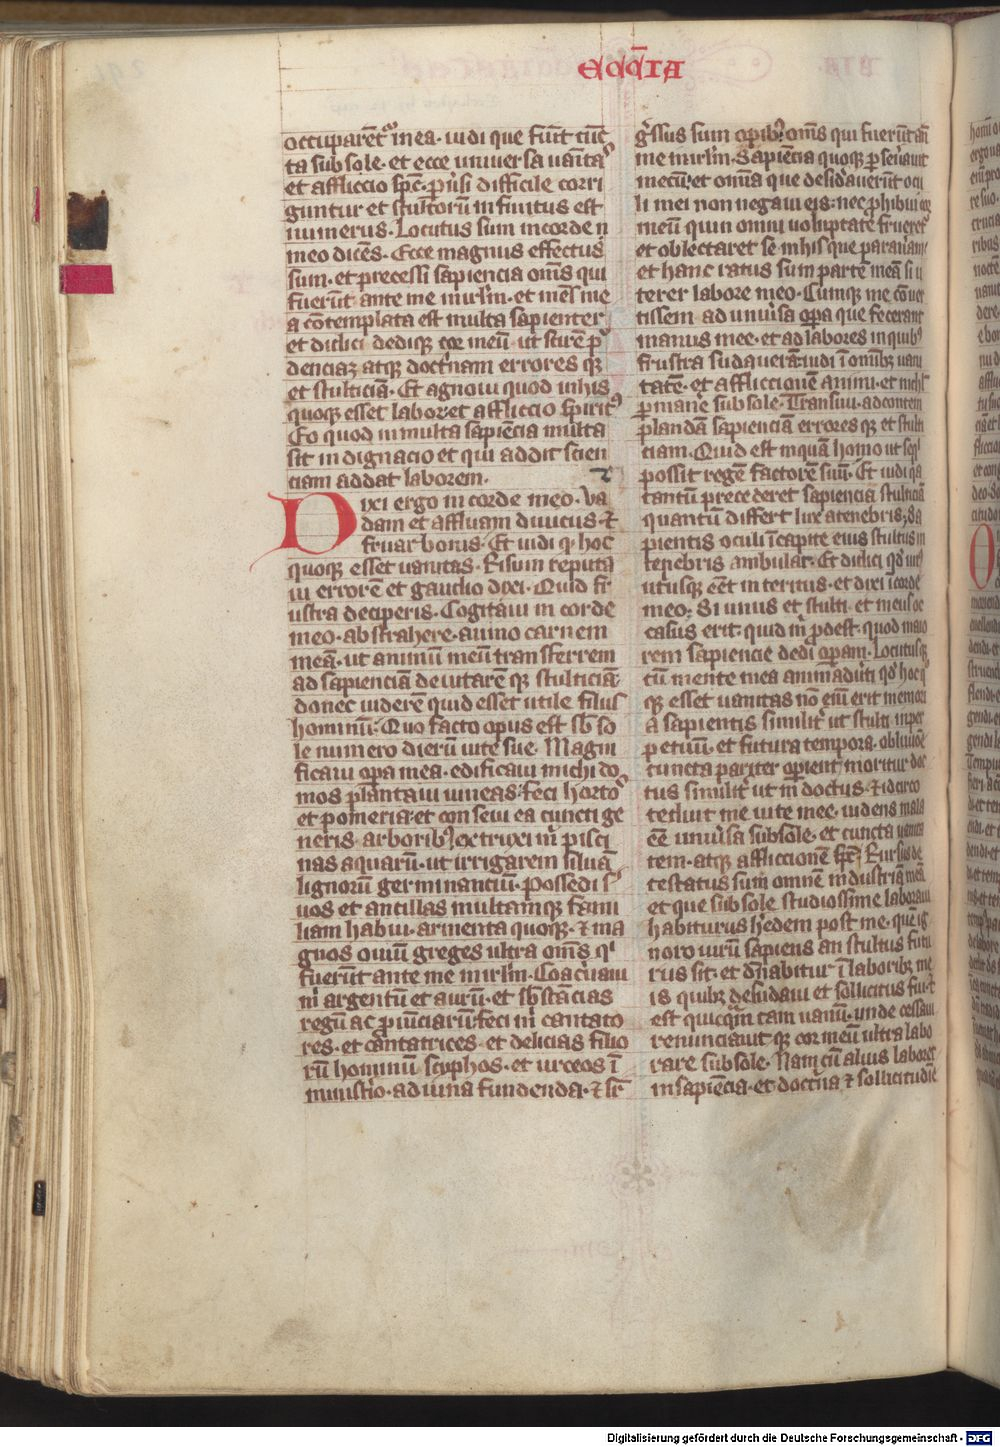 eccc̄IA
occuparent͛ in ea. uidi que fūt cūc
ta sub sole. et ecce uniuersa uanitas
et affliccio sp̄c. p̄uersi difficile corri
guntur et stultorū infinitus est
numerus. Locutus sum in corde
meo dicēs. Ecce magnus effectus
sum. et precessi sapiencia om̄s qui
fuerūt ante me in irl̄m. et mēs me
a cōtemplata est multa sapienter
et didici dediq꜄ cor meū ut scirē p
denciaꝫ atq꜄ doctͥnam errores q꜄
et stulticiā. Et agnoui quod in his
quoq꜄ esset labor et affliccio spirit꜄
Eo quod in multa sapiēcia multa
sit indignacio et qui addit scien
ciam addat laborem.
Dixi ergo in corde meo. Va
dam et affluam diuicijs ⁊
fruar bonis. Et uidi q̄ hoc
quoq꜄ esset uanitas. Risum reputa
ui errorē et gaudio dixi. Quid fr
ustra deciperis. Cogitaui in corde
meo. abstrahere. a uino carnem
meā. ut animū meū transferrem
ad sapienciā deuitarē q꜄ stulticiā
donec uiderē quid esset utile filijs
hominū. Quo facto opus est sb̄ so
le numero dierū uite sue. Magni
ficaui opa mea. edificaui michi do
mos plantaui uineas. feci hortos
et pomeria et conseui ea cuncti ge
neris arborib꜄. extruxi m̄ pisci
nas aquarū. ut irrigarem siluā
lignorū germinanciū. Possedi s̄
uos et ancillas multamq꜄ fami
liam habui. armenta quoq꜄. ⁊ ma
gnos ouiū greges ultra om̄s qͥ
fuerūt ante me in irl̄m. Coaceruaui
m̄ argentū et aurū. et sb̄stācias
regū ac p̄uinciarū. feci m̄ cantato
res. et cantatrices et delicias filio
rū hominū. scyphos. et urceos ī
ministͥio. ad uina fundenda. ⁊ su
g̃ssus sum opib꜄ om̄s qui fuerūt an̄
me in irl̄m. Sapiēcia quoq꜄ p̱seuauit
mecū. et omīa que desid̓auerūt ocu
li mei non negaui eis. nec p̱hibui cor
meū quin omni uoluptate frueret͛
et oblectaret se in his que parauam
et hanc ratus sum partē meā si u
terer labore meo. Cumq꜄ me cōuer
tissem ad uniūsa opa que fecerant
manus mee. et ad labores in quib꜄
frustra sudauerā. uidi ī omīb꜄ uani
tatē. et affliccionē animi. et nichil
p̱manē sub sole. Transiui. ad contem
plandā sapienciā errores q꜄ et stulti
ciam. Quid est inquā homo ut seq̄
possit regē factorē suū. Et uidi qͣ
tantū precederet sapiencia stulticiā
quantū differt lux a tenebris. Sa
pientis oculi ī capite eius stultus in
tenebris ambulat. Et didici qd̓ uni꜄
utriusq꜄ eēt interitus. et dixi ī corde
meo. Si unus et stulti et meus oc
casus erit. quid m̄ p̱dest. quod maio
rem sapiencie dedi opam. Locutusq꜄
cū mente mea animaduti qd̓ hoc q
q꜄ esset uanitas nō eni erit memori
a sapientis similit̓ ut stulti in per
petuū. et futura tempora. obliuiōe
cuncta pariter opient moritur doc
tus similit̓ ut in doctus. ⁊ idcirco
teduit me uite mee. uidens mala
eē uniūsa sub sole. et cuncta uanita
tem. atq꜄ affliccionē sp̄c. Rursus de
testatus sum omnē industriā meā
et que sub sole studiosissime laboraui
habiturus h̓edem post me. quē ig
noro utrū sapiens an stultus futu
rus sit. et dn̄abitur ī laborib꜄ me
is quib꜄ desudaui et sollicitus fui. ⁊
est quicq̄m tam uanū. unde cessaui
renunciauit q꜄ cor meū ultra labo
rare sub sole. Nam cū alius laboret
in sapiēcia. et doctͥna ⁊ sollicitudīe
Digitalisierung gefördert durch die Deutsche Forschungsgemeinschaft - DFG